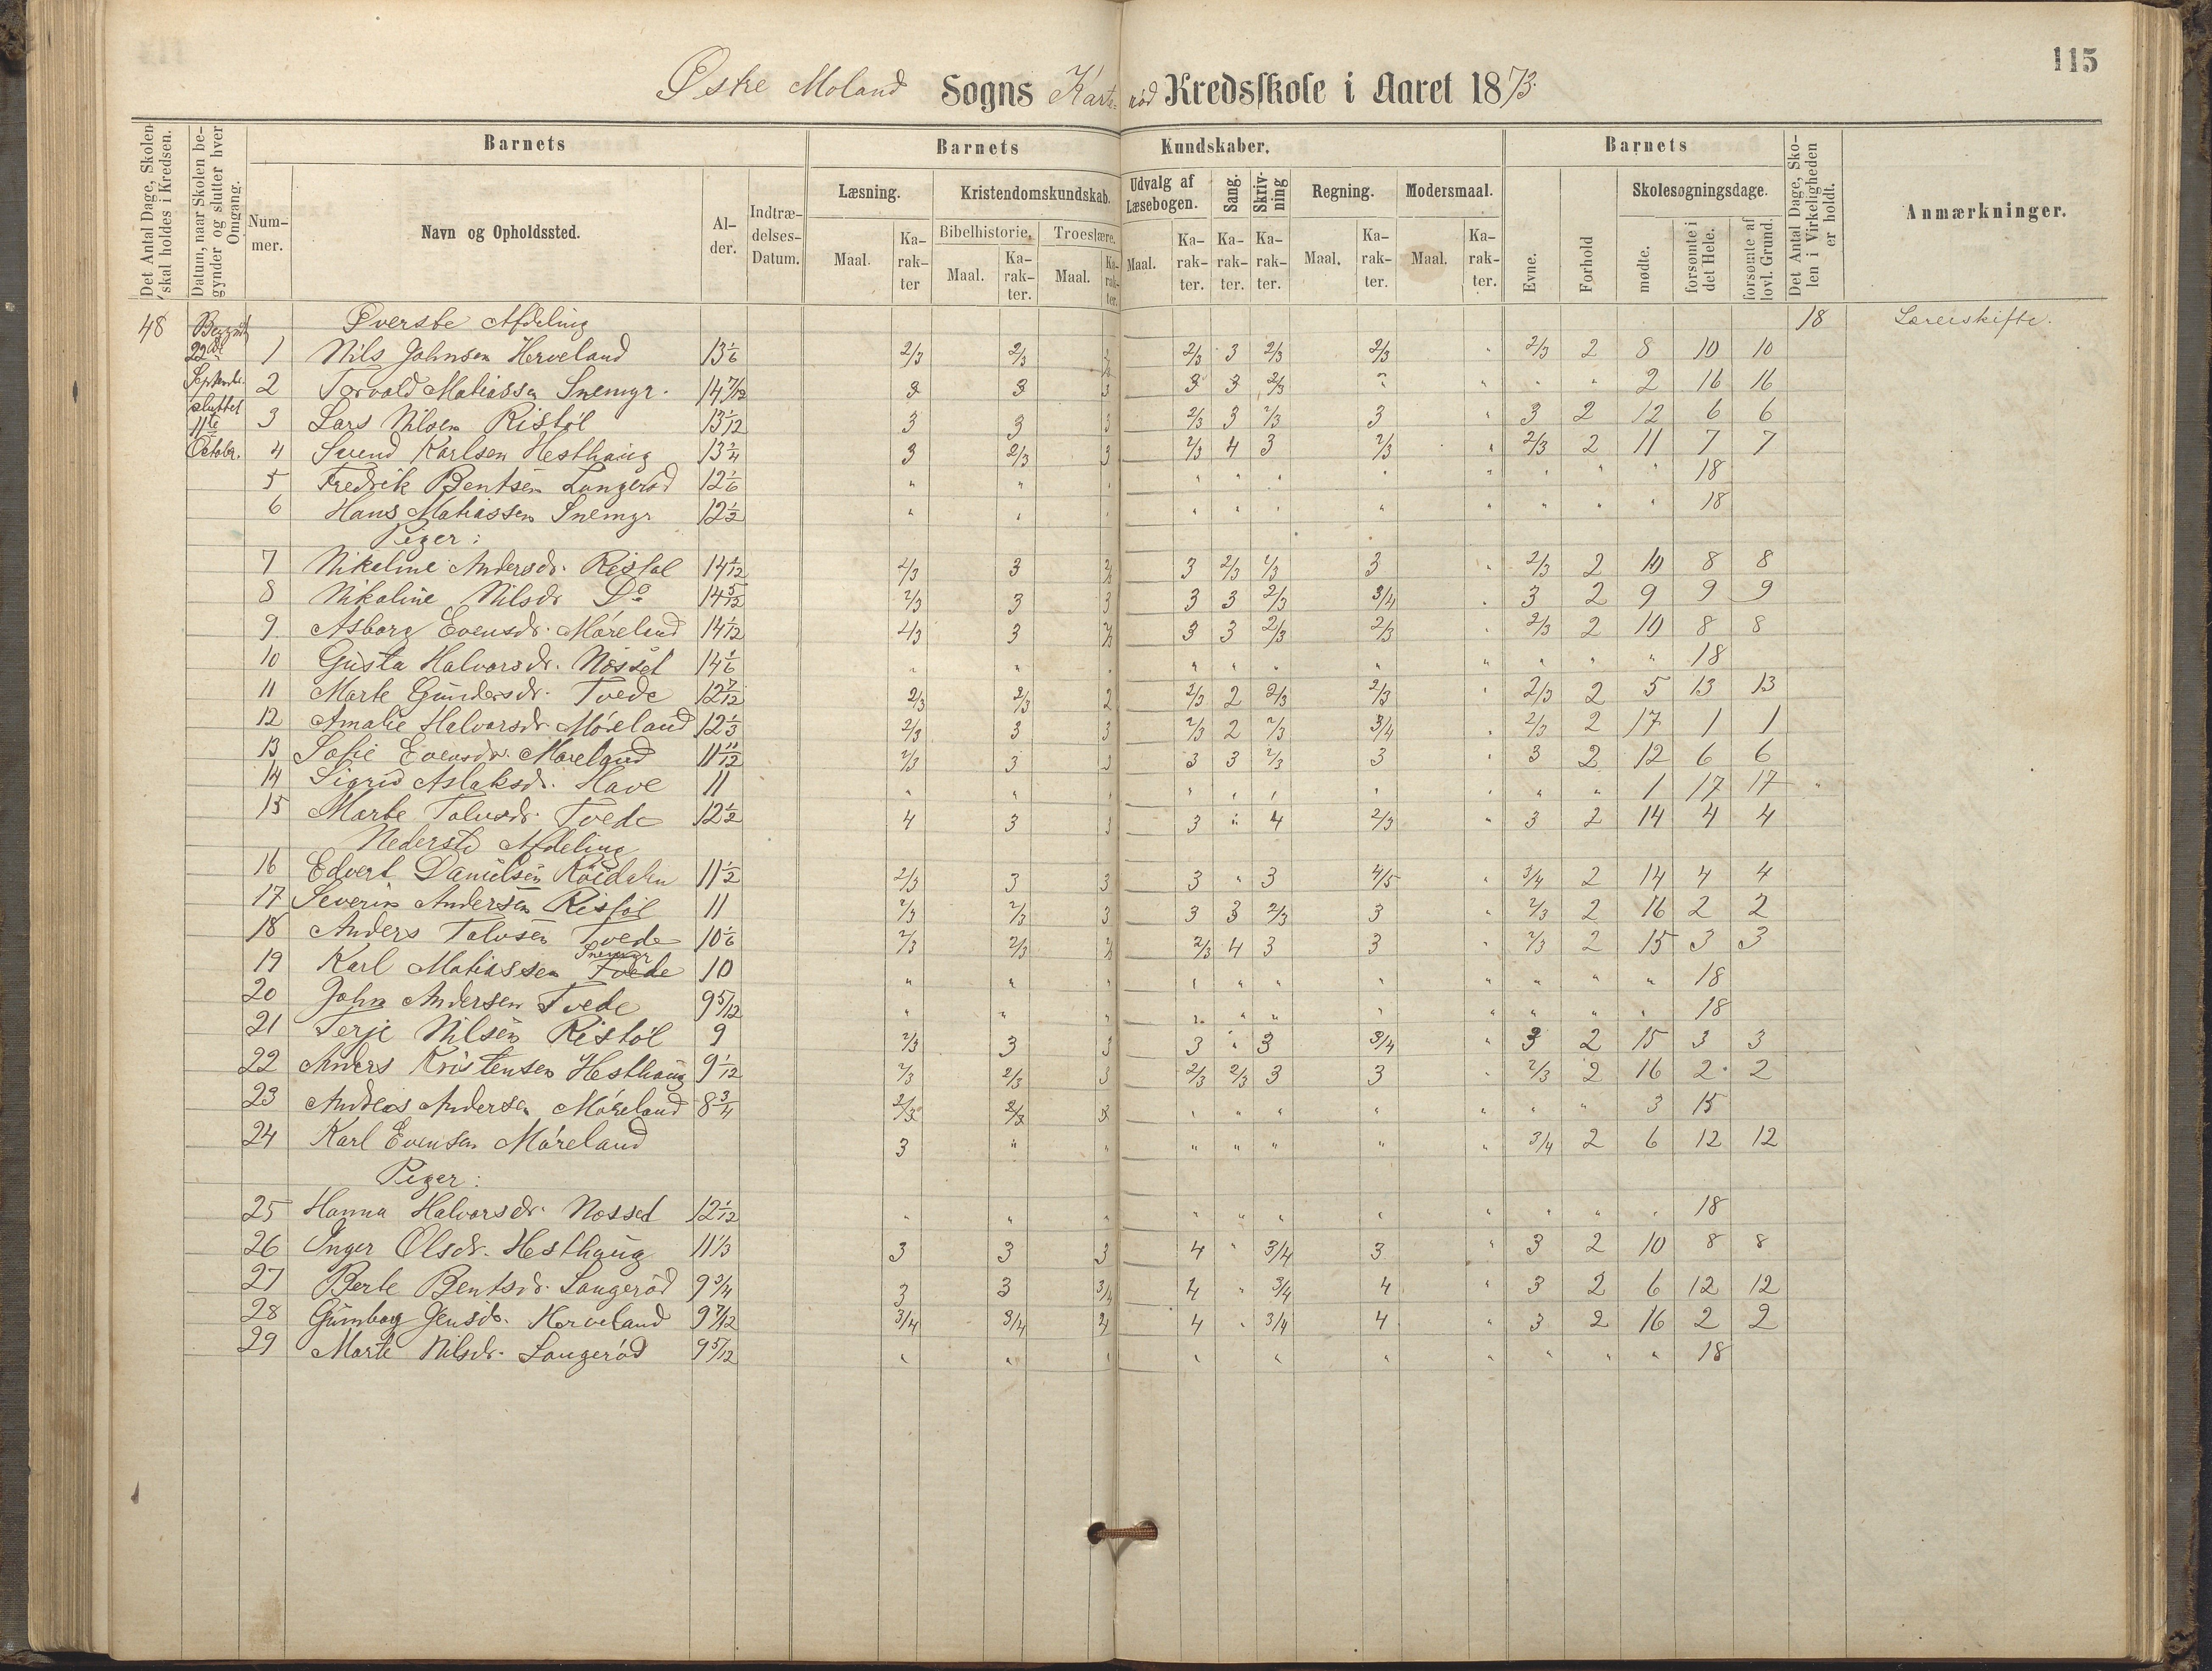 115
Østre Moland Sogns Karterød Kredsskole i Aaret 1873.
Det Antal Dage, Skolen skal holdes i Kredsen.
Datum, naar Skolen begynder og slutter hver Omgang.
Barnets
Barnets Kundskaber.
Barnets
Det Antal Dage, Skolen i Virkeligheden er holdt.
Anmærkninger.
Nummer.
Navn og Opholdssted.
Alder.
Indtrædelses-Datum.
Læsning.
Kristendomskundskab.
Udvalg af Læsebogen.
Sang.
Skrivning
Regning.
Modersmaal.
Evne.
Forhold
Skolesøgningsdage.
Bibelhistorie.
Troeslære.
mødte.
forsømte i det Hele.
forsømte af lovl. Grund.
Maal. Karakter Maal. Karakter. Maal. Karakter. Maal. Karakter. Karakter. Karakter. Maal. Karakter. Maal. Karakter.
48 Øverste Afdeling 18 Lærerskifte.
22de September sluttet 11te October.
1 Nils Johnsen Herveland 13 1/6 2/3 2/3 2/3 3 2/3 2/3 " 2/3 2 8 10 10
2 Torvald Matiassen Snemyr. 14 7/12 3 3 3 3 3 2/3 " " " " 2 16 16
3 Lars Nilsen Ristöl 13 1/12 3 3 3 2/3 3 2/3 3 " 3 2 12 6 6
4 Svend Karlsen Hesthaug 13 1/4 3 2/3 3 2/3 4 3 2/3 " 2/3 2 11 7 7
5 Fredrik Bentsen Langeröd 12 1/6 " " " " " " " " " " " 18
6 Hans Matiassen Snemyr 12 1/2 " " " " " " " " " " " 18
Piger:
7 Nikoline Andersdr. Ristøl 14 1/12 2/3 3 2/3 3 2/3 2/3 3 " 2/3 2 10 8 8
8 Nikoline Nilsdr Do 14 5/12 2/3 3 3 3 3 2/3 3/4 " 3 2 9 9 9
9 Asborg Evensdr. Möreland 14 1/12 2/3 3 2/3 3 3 2/3 2/3 " 2/3 2 10 8 8
10 Gusta Halvorsdr. Nossed 14 1/6 " " " " " " " " " " " 18
11 Marte Gundersdr. Tvede 12 7/12 2/3 2/3 2 2/3 2 2/3 2/3 " 2/3 2 5 13 13
12 Amalie Halvorsdr. Möreland 12 1/3 2/3 3 3 2/3 2 2/3 3/4 " 2/3 2 17 1 1
13 Sofie Evensdr. Möreland 11 11/12 2/3 3 3 3 3 2/3 3 " 3 2 12 6 6
14 Sigrid Aslaksdr. Have 11 " " " " " " " " " " 1 17 17 "
15 Marte Talvsdr. Tvede 12 1/2 4 3 3 3 " 4 2/3 " 3 2 14 4 4
Nederste Afdeling
16 Edvert Danielsen 11 1/2 2/3 3 3 3 " 3 4/5 " 3/4 2 14 4 4
17 Severin Andersen Ristöl 11 2/3 2/3 3 3 3 2/3 3 " 2/3 2 16 2 2
18 Anders Talvsen Tvede 10 1/6 2/3 2/3 2/3 2/3 4 3 3 " 2/3 2 15 3 3
19 Karl Matiassen Tvede Snemyr 10 " " " " " " " " " " " 18
20 John Andersen Tvede 9 5/12 " " " " " " " " " " " 18
21 Terje Nilsen Ristöl 9 2/3 3 3 3 " 3 3/4 " 3 2 15 3 3
22 Anders Kristensen Hesthaug 9 1/12 2/3 2/3 3 2/3 2/3 3 3 " 2/3 2 16 2 2
23 Andreas Andersen Möreland 8 3/4 2/3 2/3 3 " " " " " " " 3 15
24 Karl Evensen Möreland 3 " " " " " " " 3/4 2 6 12 12
Piger:
25 Hanna Halvorsdr. Nossed 12 1/12 " " " " " " " " " " " 18
26 Inger Olsdr. Hesthaug 11 1/3 3 3 3 4 " 3/4 3 " 3 2 10 8 8
27 Berte Bentsdr. Langeröd 9 3/4 3 3 3/4 4 " 3/4 4 " 3 2 6 12 12
28 Gumborg Jensdr. Herveland 9 7/12 3/4 3/4 4 " 3/4 4 " 3 2 16 2 2
29 Marte Nilsdr. Langeröd 9 5/12 " " " " " " " " " " 18